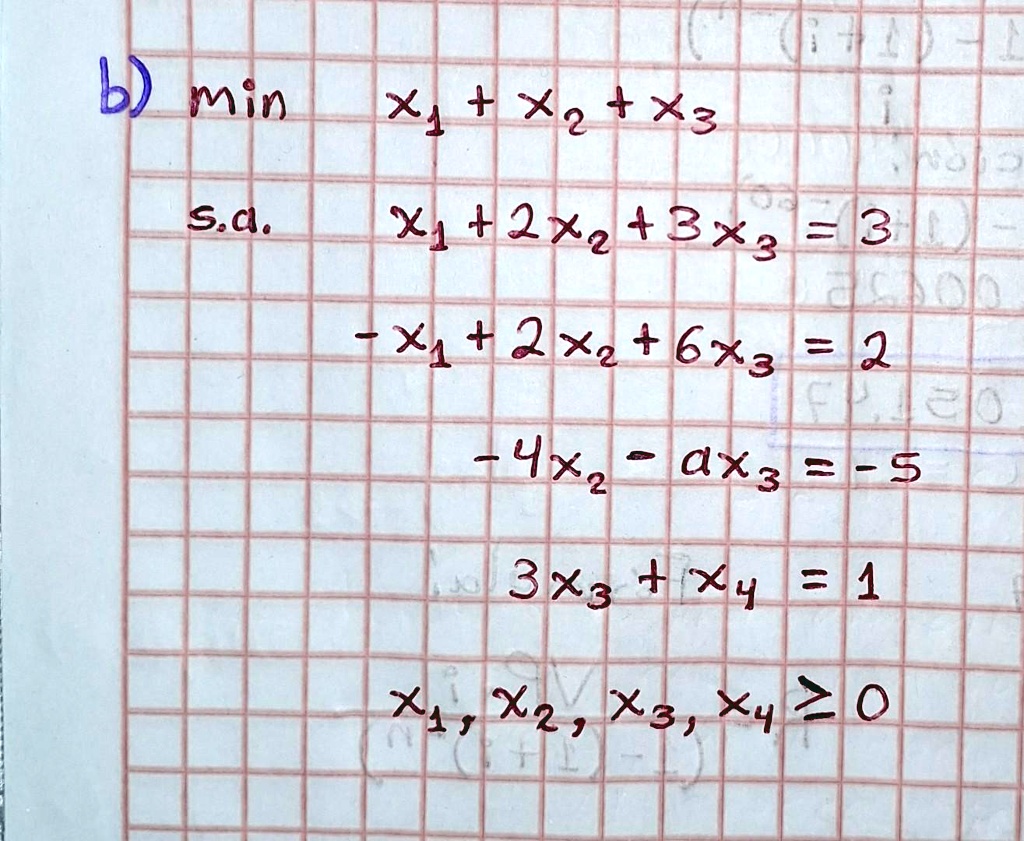 b) min x₁ + x₂ + x₃
s.a. x₁ + 2x₂ + 3x₃ = 3
-x₁ + 2x₂ + 6x₃ = 2
-4x₂ - ax₃ = -5
3x₃ + x₄ = 1
x₁, x₂, x₃, x₄ ≥ 0